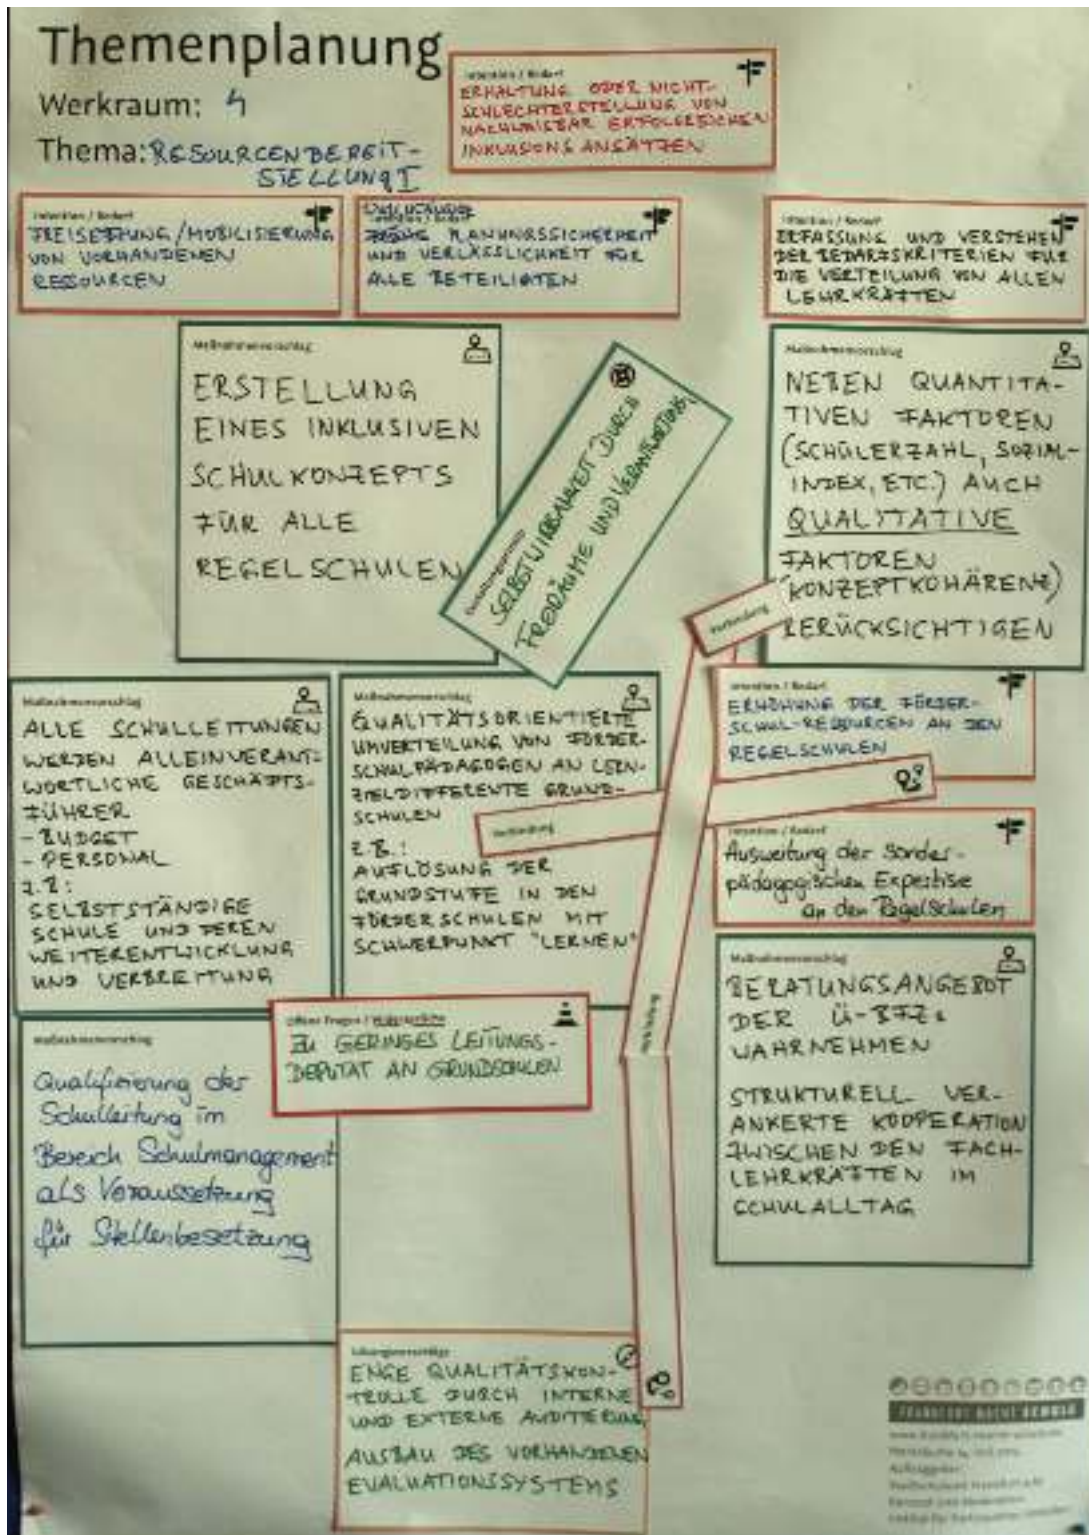 Themenplanung
Werkraum: 4
Thema: RESOURCENBEREIT-
STELLUNG I
Intention / Bedarf
ERHALTUNG ODER NICHT-
SCHLECHTERSTELLUNG VON
NACHWEISBAR ERFOLGREICHEN
INKLUSIONSANSÄTZEN
Intention / Bedarf
FREISETZUNG/MOBILISIERUNG
VON VORHANDENEN
RESSOURCEN
PLANUNGSSICHERHEIT
UND VERLÄSSLICHKEIT FÜR
ALLE BETEILIGTEN
Intention / Bedarf
ERFASSUNG UND VERSTEHEN
DER BEDARFSKRITERIEN FÜR
DIE VERTEILUNG VON ALLEN
LEHRKRÄFTEN
Maßnahmenvorschlag
ERSTELLUNG
EINES INKLUSIVEN
SCHULKONZEPTS
FÜR ALLE
REGELSCHULEN
SELBSTWIRKSAMKEIT DURCH
FREIRÄUME UND VERANTWORTUNG
Maßnahmenvorschlag
NEBEN QUANTITA-
TIVEN FAKTOREN
(SCHÜLERZAHL, SOZIAL-
INDEX, ETC.) AUCH
QUALITATIVE
FAKTOREN
(KONZEPTKOHÄRENZ)
BERÜCKSICHTIGEN
Verbindung
Maßnahmenvorschlag
ALLE SCHULLEITUNGEN
WERDEN ALLEINVERANT-
WORTLICHE GESCHÄFTS-
FÜHRER
- BUDGET
- PERSONAL
Z.B:
SELBSTSTÄNDIGE
SCHULE UND DEREN
WEITERENTWICKLUNG
UND VERBREITUNG
Maßnahmenvorschlag
QUALITÄTSORIENTIERTE
UMVERTEILUNG VON FÖRDER-
SCHULPÄDAGOGEN AN LERN-
ZIELDIFFERENTE GRUND-
SCHULEN
Z.B.:
AUFLÖSUNG DER
GRUNDSTUFE IN DEN
FÖRDERSCHULEN MIT
SCHWERPUNKT "LERNEN"
Verbindung
Intention / Bedarf
ERHÖHUNG DER FÖRDER-
SCHUL-RESSOURCEN AN DEN
REGELSCHULEN
Intention / Bedarf
Ausweitung der sonder-
pädagogischen Expertise
an den Regelschulen
Maßnahmenvorschlag
BERATUNGSANGEBOT
DER Ü-BFZs
WAHRNEHMEN
STRUKTURELL VER-
ANKERTE KOOPERATION
ZWISCHEN DEN FACH-
LEHRKRÄFTEN IM
SCHULALLTAG
Verbindung
Maßnahmenvorschlag
Qualifizierung der
Schulleitung im
Bereich Schulmanagement
als Voraussetzung
für Stellenbesetzung
Offene Fragen /
ZU GERINGES LEITUNGS-
DEPUTAT AN GRUNDSCHULEN
Lösungsvorschläge
ENGE QUALITÄTSKON-
TROLLE DURCH INTERNE
UND EXTERNE AUDITIERUNG
AUSBAU DES VORHANDENEN
EVALUATIONSSYSTEMS
FRANKFURT MACHT SCHULE